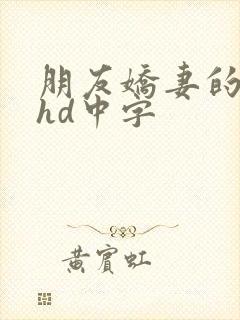 朋友嬌妻的
hd中字
黄賓虹